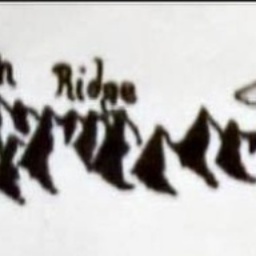 h Ridge